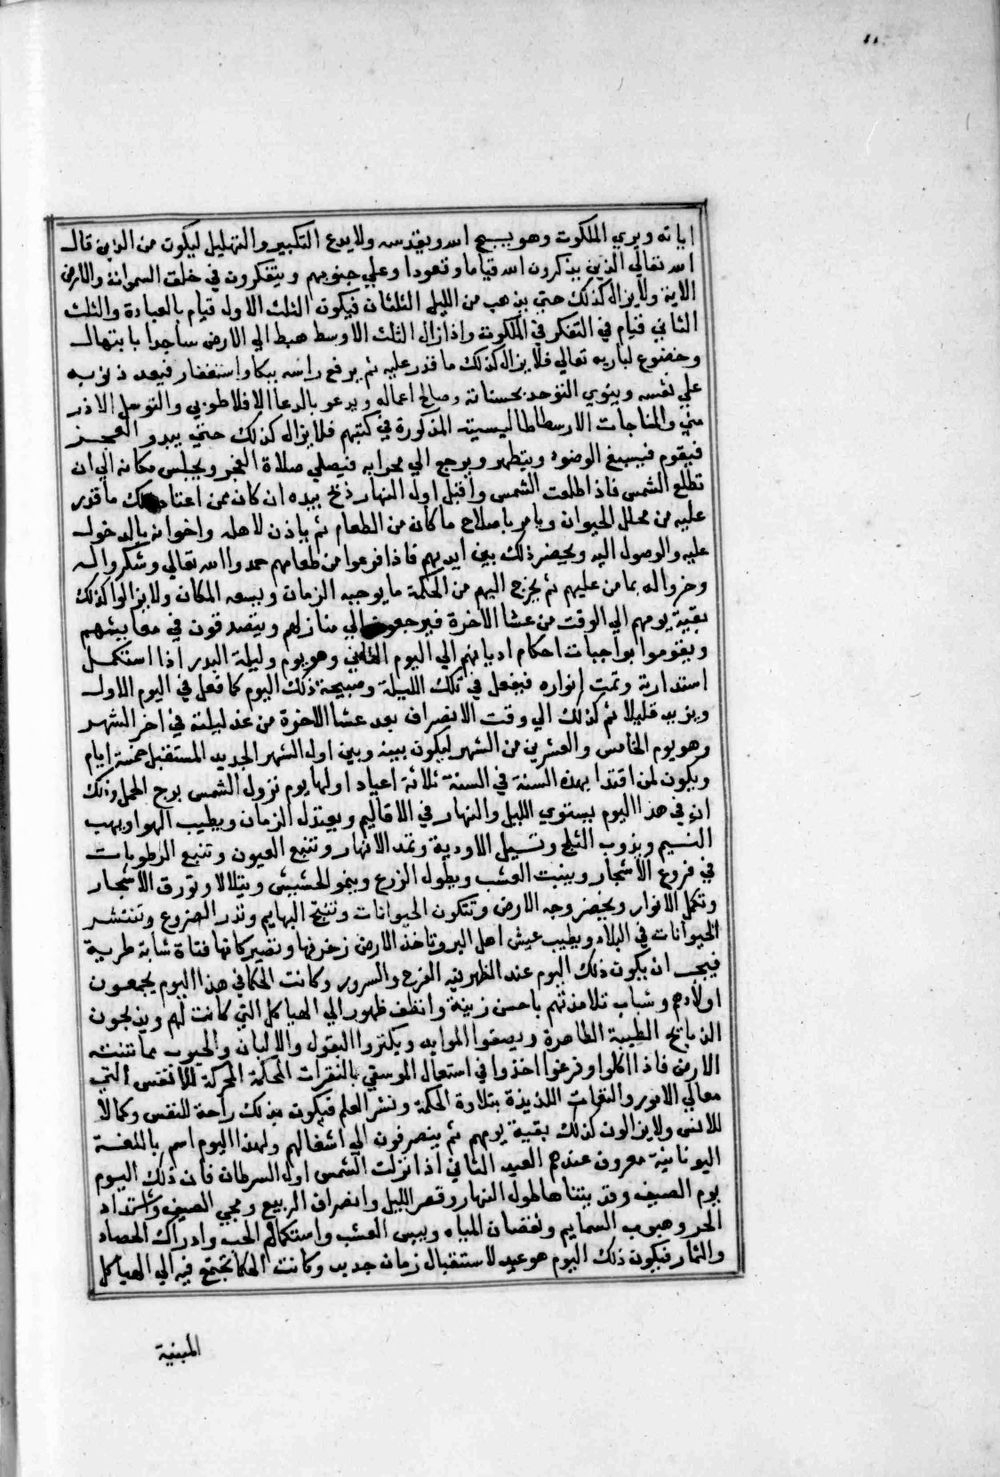 اياته ويري الملكوت وهو يسبح الله ويقدسه ولا يدع التكبير والتهليل ليكون من الذين قال
الله تعالي الذين يذكرون الله قياما وقعودا وعلي جنوبهم ويتفكرون في خلق السموات والارض
الاية ولا يزال كذلك حتي يذهب من الليل الثلثان فيكون الثلث الاول قيام بالعبادة والثلث
الثاني قيام في التفكر في الملكوت واذا زال الثلث الاوسط هبط الي الارض ساجدا بابتهال
وخضوع لباريه تعالي فلا يزال كذلك ما قدر عليه ثم يرفع راسه ببكا واستغفار فيعد ذنوبه
علي نفسه وينوي التوحد بحسناته وصالح اعماله ويدعو بالدعا الافلاطوني والتوسل الادر
مني والمناجات الارسطاطاليسيته المذكورة في كتبهم فلا يزال كذلك حتي يبدو الفجر
فيقوم فيسبغ الوضوء ويتطهر ويرجع الي محرابه فيصلي صلاة الفجر ويجلس مكانه الي ان
تطلع الشمس فاذا طلعت الشمس واقبل اول النهار ذبح بيده ان كان ممن اعتاد ذلك ما قدر
عليه من محلل الحيوان ويامر باصلاح ما كان من الطعام ثم ياذن لاهله واخوانه بالدخول
عليه والوصول اليه ويحضر ذلك بين ايديهم فاذا فرغوا من طعامهم حمدوا الله تعالي وشكروا له
وخروا له بما من عليهم ثم يخرج اليهم من الحكمة ما يوجبه الزمان ويسعه المكان ولا يزالوا كذلك
بقية يومهم الي الوقت من عشا الاخرة فيرجعون الي منازلهم ويتصدقون في معايشهم
ويقوموا بواجبات احكام اديانهم الي اليوم الثاني وهو يوم وليلة البدر اذا استكمل
استدارته وتمت انواره فيفعل في تلك الليلة وصبيحة ذلك اليوم كما فعل في اليوم الاول
ويزيد قليلا ثم كذلك الي وقت الانصراف بعد عشا الاخرة من غد ليلته في اخر الشهر
وهو يوم الخامس والعشرين من الشهر ليكون بينه وبين اول الشهر الجديد المستقبل خمسة ايام
ويكون لمن اقتدا بهذه السنة في السنة ثلاثة اعياد اولها يوم نزول الشمس برج الحمل وذلك
ان في هذا اليوم يستوي الليل والنهار في الاقاليم ويعتدل الزمان ويطيب الهوا ويهب
النسيم ويذوب الثلج وتسيل الاودية وتمد الانهار وتنبع العيون وتنبع الرطوبات
في فروع الاشجار وينبت العشب ويطول الزرع وينمو الحشيش ويتلالا وتورق الاشجار
وتكمل الانوار ويخضر وجه الارض وتتكون الحيوانات وتنتج البهايم وتدر الضروع وتنتشر
الحيوانات في البلاد ويطيب عيش اهل البر وتاخذ الارض زخرفها وتصير كانها فتاة شابة طرية
فيجب ان يكون ذلك اليوم عند الظهر فيه الفرح والسرور وكانت الحكما في هذا اليوم يجمعون
اولادهم وشباب تلامذتهم باحسن زينة وانظف ظهور الي الهياكل التي كانت لهم ويذبحون
الذبايح الطيبة الطاهرة ويصفوا الموايد ويكثروا البقول والالبان والحبوب مما تنبته
الارض فاذا اكلوا وفرغوا اخذوا في استعمال الموسقي بالنقرات المحكمة المحركة للانفس الي
معالي الامور والنغمات اللذيذة بتلاوة الحكمة ونشر العلم فيكون بذلك راحة للنفس وكمالا
للانس ولا يزالون كذلك بقية يومهم ثم ينصرفون الي اشغالهم ولهذا اليوم اسم باللغة
اليونانية معروف عندهم العيد الثاني اذا نزلت الشمس اول السرطان فان ذلك اليوم
يوم الصيف وقد بينتنا هاطول النهار وقصر الليل وانصراف الربيع ومجي الصيف واشتداد
الحر وهبوب السمايم ونقصان المياه ويبس العشب واستكمال الحب وادراك الحصاد
والثمار فيكون ذلك اليوم هو عيد لاستقبال زمان جديد وكانت الحكما تجتمع فيه الي الهياكل
المبنية